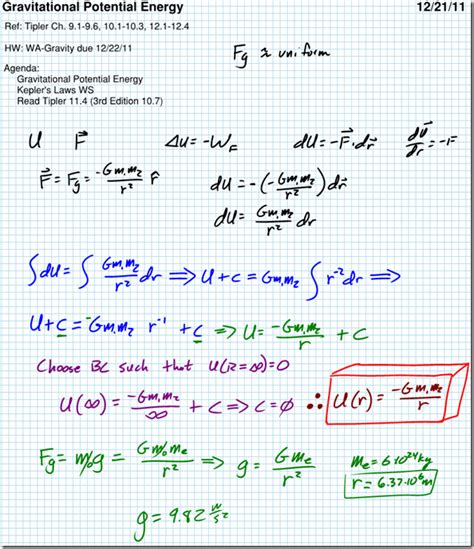 Gravitational Potential Energy 12/21/11
Ref: Tipler Ch. 9.1-9.6, 10.1-10.3, 12.1-12.4
HW: WA-Gravity due 12/22/11
Fg ≈ uniform
Agenda:
Gravitational Potential Energy
Kepler's Laws WS
Read Tipler 11.4 (3rd Edition 10.7)
U F⃗ ΔU = -W_F dU = -F⃗·dr⃗ dU⃗/dr = -F
F⃗ = F⃗g = -Gm₁m₂/r² r̂ dU = -(-Gm₁m₂/r²)dr⃗
dU = Gm₁m₂/r² dr
∫dU = ∫ Gm₁m₂/r² dr ⇒ U + C = Gm₁m₂ ∫ r⁻² dr ⇒
U + C = -Gm₁m₂ r⁻¹ + C ⇒ U = -Gm₁m₂/r + C
Choose BC such that U(R=∞)=0
U(∞) = -Gm₁m₂/∞ + C ⇒ C = Ø ∴ U(r) = -Gm₁m₂/r
Fg = m₀g = Gm₀me/r² ⇒ g = Gme/r² me = 6·10²⁴kg
r = 6.37·10⁶m
g = 9.82 m/s²